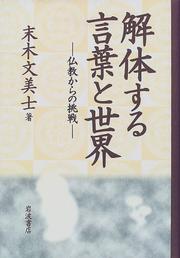 解体する
言葉と世界
―仏教からの挑戦―
末木文美士 著
岩波書店